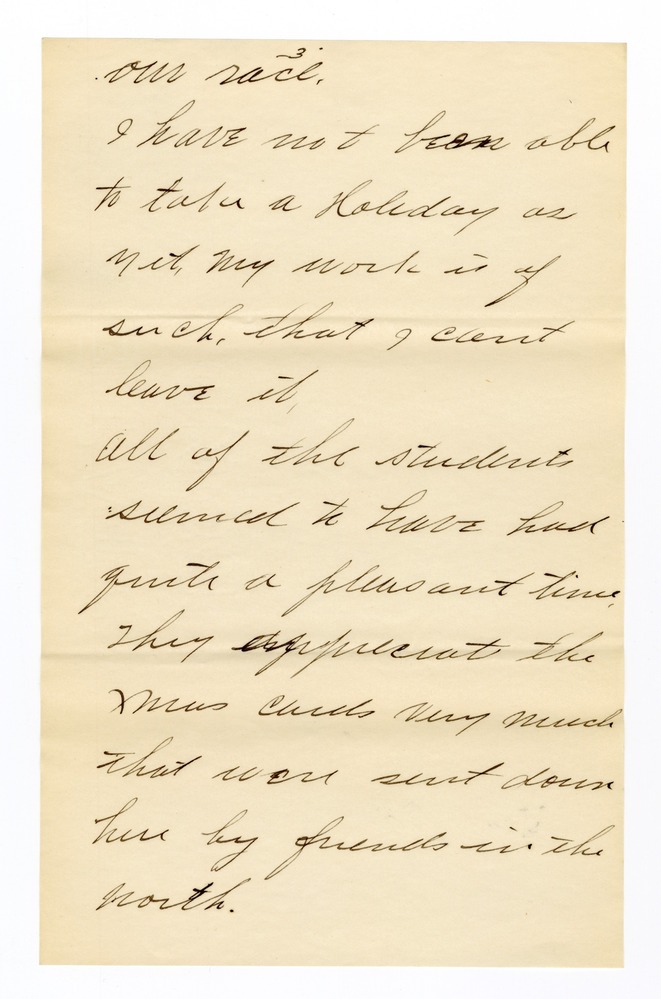 3
our race.
I have not been able
to take a Holiday as
yet, my work is of
such, that I cant
leave it,
all of the students
seemed to have had
quite a pleasant time,
They appreciate the
Xmas cards very much
that were sent down
here by friends in the
north.